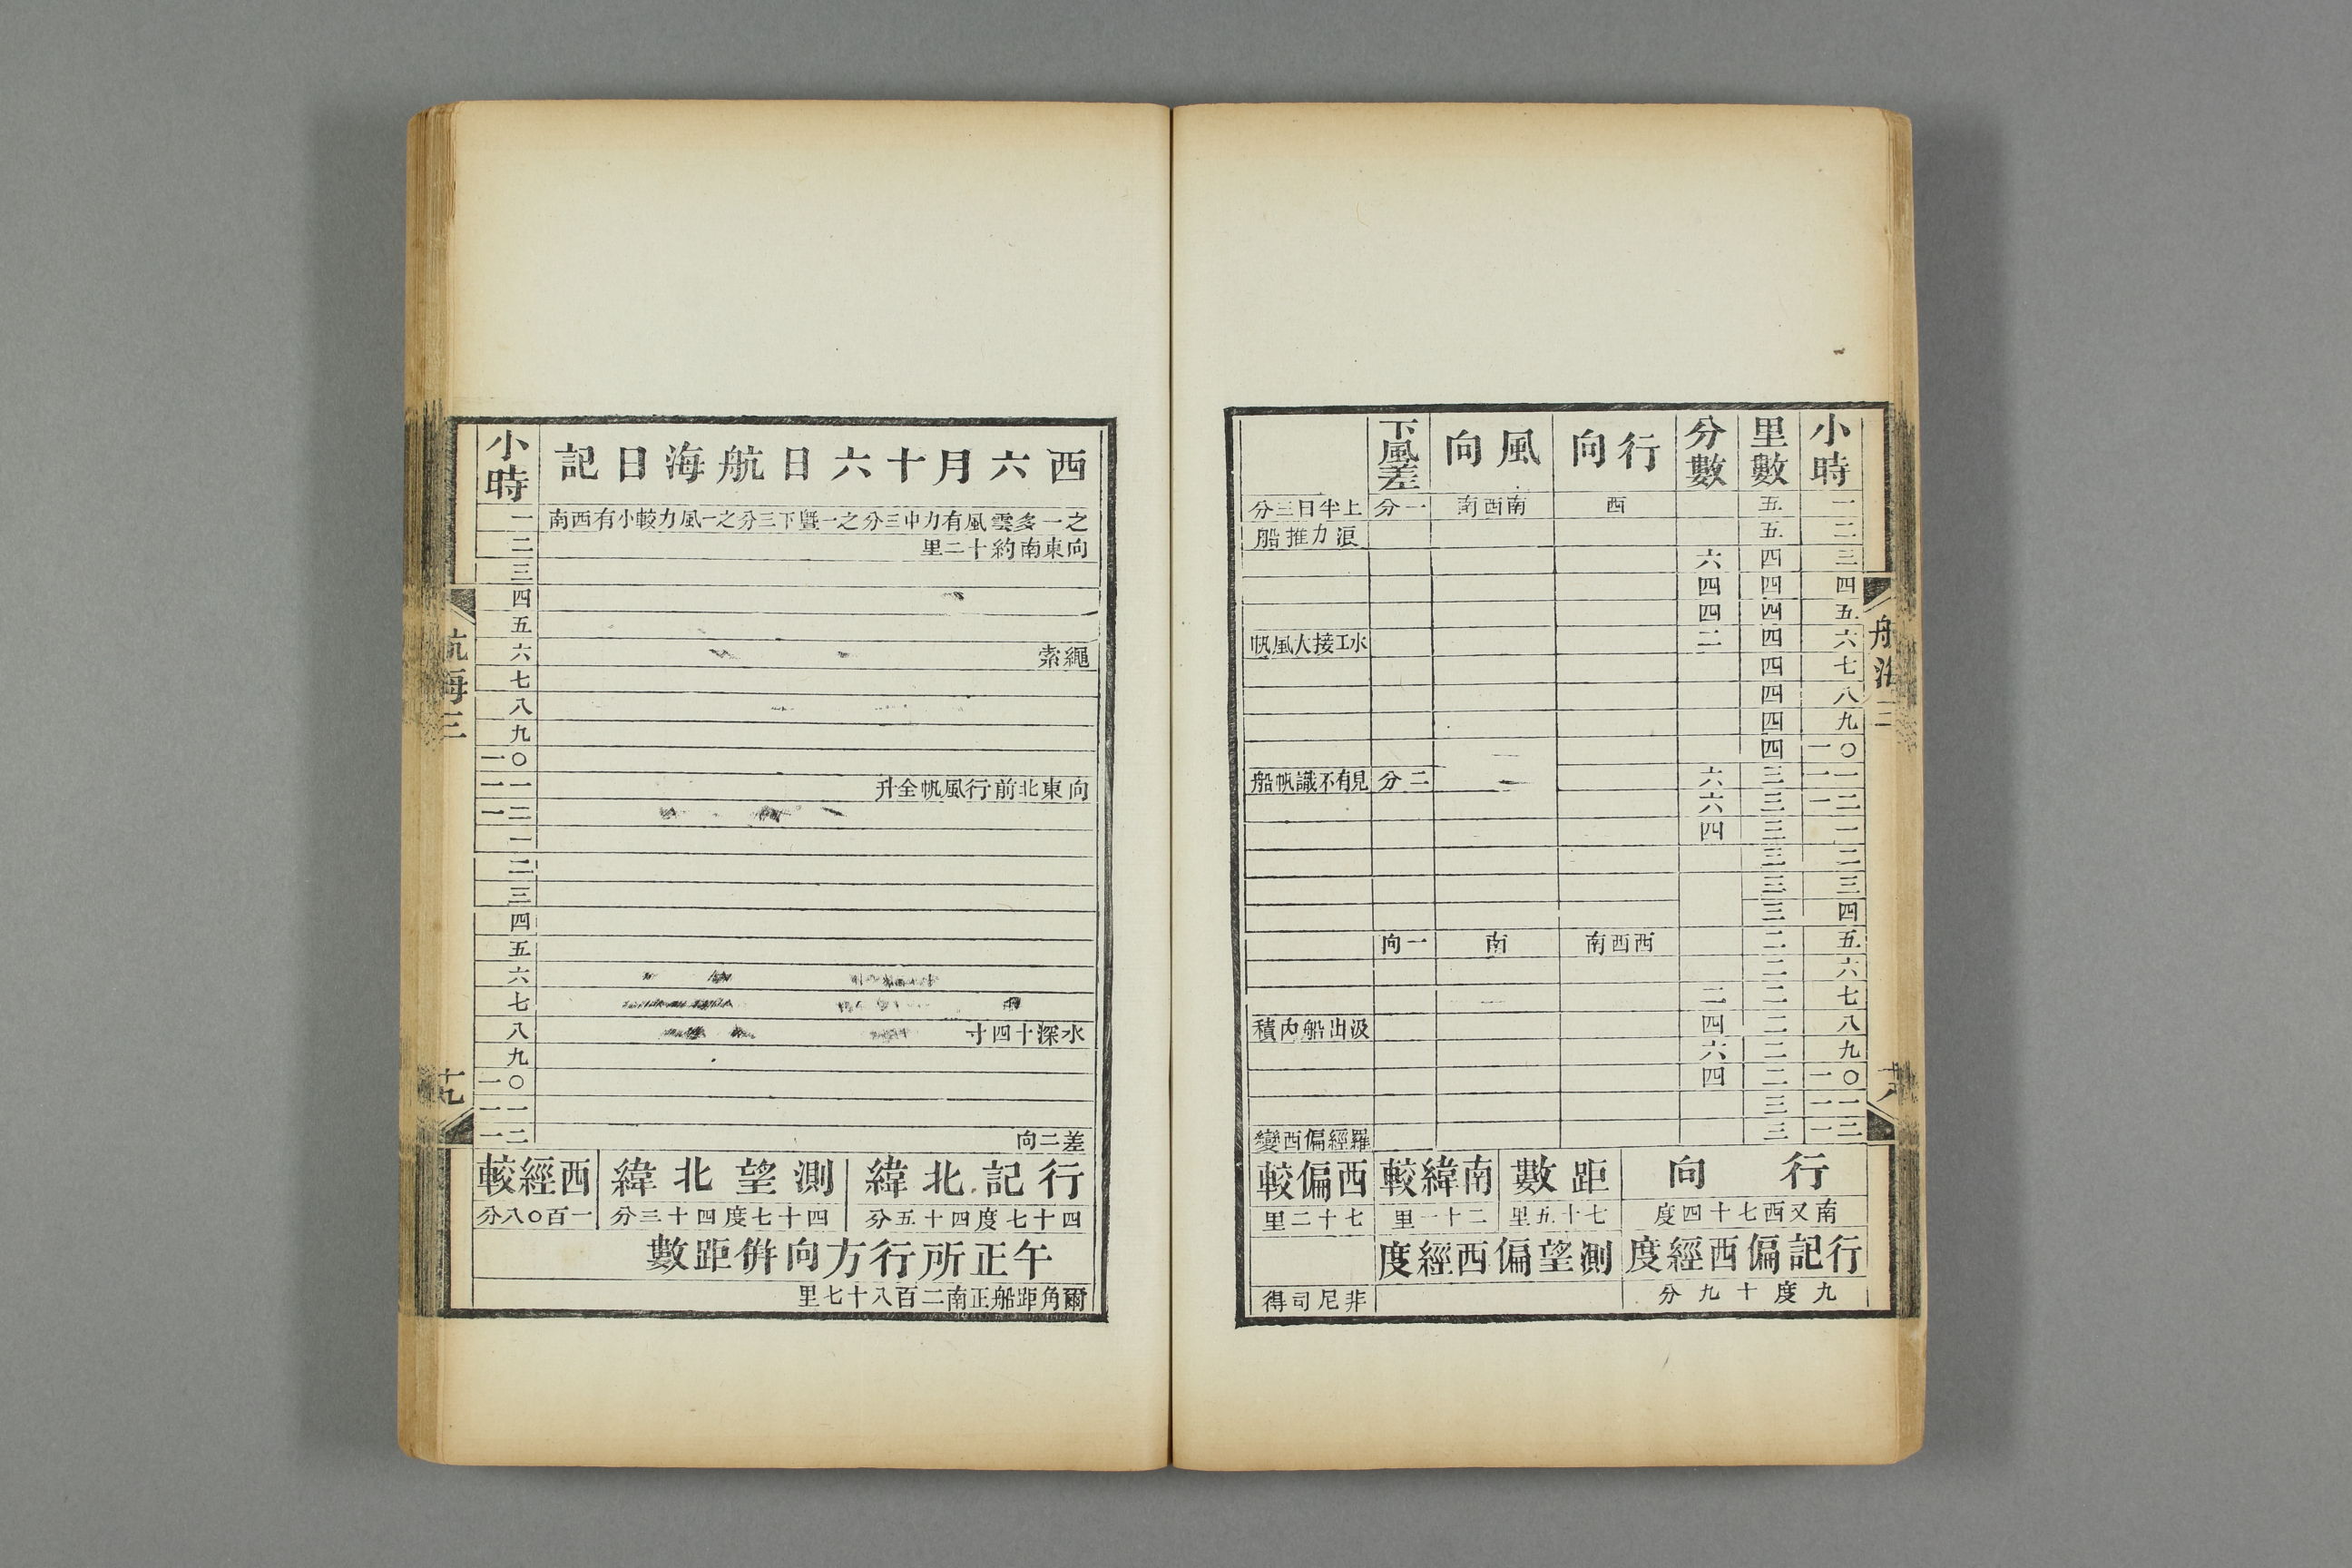 小時 里數 分數 行向 風向 下風差
一 五 西 南西南 一分 上半日三分
二 五 浪力推船
三 四 六
四 四 四
五 四 四
六 四 二 水工接大風帆
七 四
八 四
九 四
一〇 四
一一 三 六 二分 見有不識帆船
一二 三 六
一 三 四
二 三
三 三
四 三
五 二 西西南 南 一向
六 二
七 二 二
八 二 四 汲出船內積
九 二 六
一〇 二 四
一一 三
一二 三 羅經偏西變
行向 距數 南緯較 西偏較
南又西七十四度 七十五里 二十一里 七十二里
行記偏西經度 測望偏西經度
九度十九分 非尼司得
航海三
十八
西六月十六日航海日記 小時
之一多雲風有力中三分之一暨下三分之一風力較小有西南 一
向東南約十二里 二
三
四
五
繩索 六
七
八
九
一〇
向東北前行風帆全升 一一
一二
一
二
三
四
五
六
七
水深十四寸 八
九
一〇
一一
差二向 一二
行記北緯 測望北緯 西經較
四十七度四十五分 四十七度四十三分 一百〇八分
午正所行方向併距數
爾角距船正南二百八十七里
航海三
十九